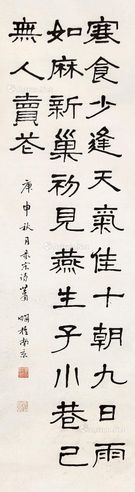 寒食少逢天氣佳十朝九日雨
如麻新巢初見燕生子小巷已
無人賣花
庚申秋月录宋詩蕭嫻於南京